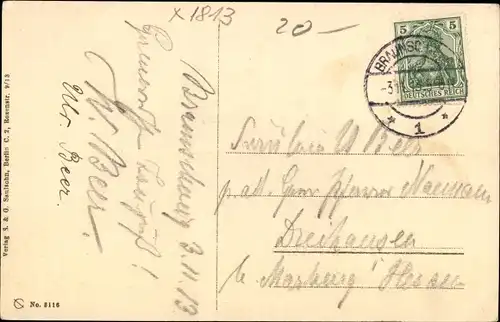 x 1813
20 –
5 5
DEUTSCHES REICH
BRAUNSC
* 1 *
Braunschweig 3.11.13
W. Beer.
Ulr. Beer.
Fräulein U Beer
p. Adr. Herrn Pfarrer Naumann
Dreihausen
b. Marburg Hessen
Verlag S. & G. Saulsohn, Berlin C. 2, Rosenstr. 9/13
No. 8116